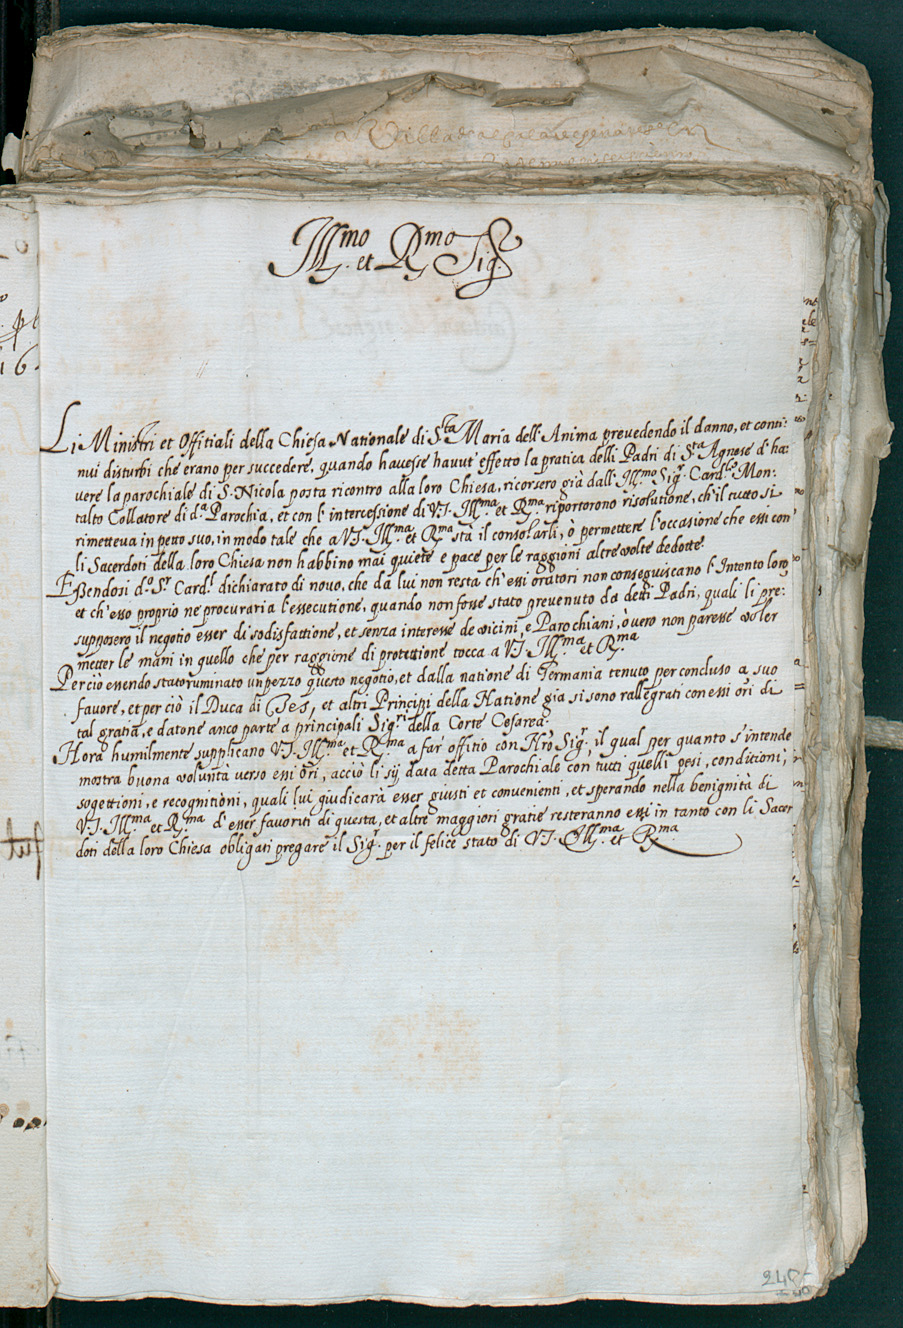 Ill.mo et R.mo Sig.r
Li Ministri et Offitiali della Chiesa Nationale di S.ta Maria dell'Anima prevedendo il danno, et conti:
nui disturbi che erano per succedere, quando havesse havut' effetto la pratica delli Padri di S.ta Agnese d' ha:
vere la parochiale di S. Nicola posta ricontro alla loro Chiesa, ricorsero già dall' Ill.mo Sig.r Card.le Mon:
talto Collatore di d.a Parochia, et con l' intercessione di V.S. Ill.ma et R.ma riportorono risolutione, ch' il tutto si
rimetteva in petto suo, in modo tale che a V.S. Ill.ma et R.ma stà il consolarli, ò permettere l' occasione che essi con
li Sacerdoti della loro Chiesa non habbino mai quiete e pace per le raggioni altre volte dedotte.
Essendosi d.o S.r Card.l dichiarato di novo, che da lui non resta ch' essi oratori non conseguiscano l' Intento loro,
et ch' esso proprio ne procuraria l' essecutione, quando non fosse stato prevenuto da detti Padri, quali li pre:
supposero il negotio esser di sodisfattione, et senza interesse de vicini, e Parochiani, ò vero non paresse voler
metter le mani in quello che per raggione di protettione tocca a V.S. Ill.ma et R.ma
Perciò essendo stato ruminato un pezzo questo negotio, et dalla natione di Germania tenuto per concluso a suo
favore, et per ciò il Duca di et altri Principi della Natione gia si sono rallegrati con essi ori di
tal gratia, e datone anco parte a principali Sig.ri della Corte Cesarea.
Hora humilmente supplicano V.S. Ill.ma et R.ma a far offitio con N.ro Sig.r, il qual per quanto s' intende
mostra buona volunta verso essi ori, acciò li sij data detta Parochiale con tutti quelli pesi, conditioni,
sogettioni, e recognitioni, quali lui giudicarà esser giusti et convenienti, et sperando nella benignità di
V.S. Ill.ma et R.ma d' esser favoriti di questa, et altre maggiori gratie resteranno essi in tanto con li Sacer
doti della loro Chiesa obligati pregare il Sig.r per il felice stato di V.S. Ill.ma et R.ma
240